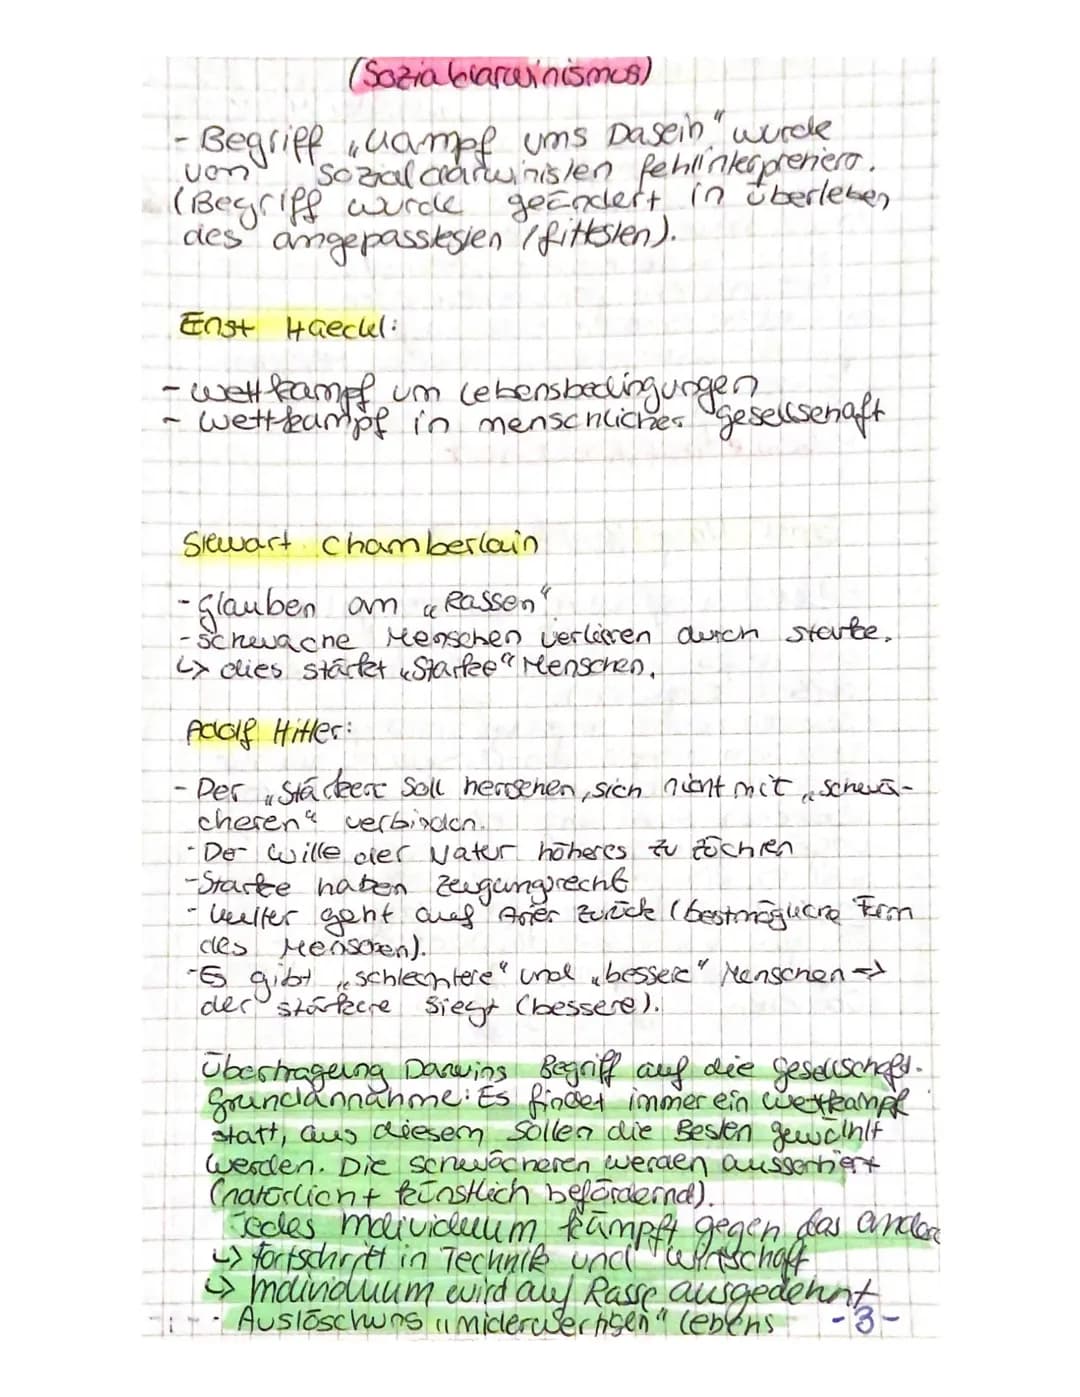 (Sozialdarwinismus)
- Begriff „Kampf ums Dasein" wurde
von Sozialdarwinisten fehlinterpretiert.
(Begriff wurde geändert in überleben
des angepasstesten / fittesten).
Enst Haeckel:
- Wettkampf um Lebensbedingungen
- Wettkampf in menschlicher Gesellschaft
Stewart Chamberlain
- Glauben an „Rassen"
- schwache Menschen verlieren durch starke.
↳ dies stärkt „Starke" Menschen.
Adolf Hitler:
- Der „Stärkere soll herrschen, sich nicht mit „schwä-
cheren" verbinden.
- Der Wille der Natur höheres zu züchten
- Starke haben Zeugungsrecht
- Kultur geht auf Arier zurück (bestmögliche Form
des Menschen).
- Es gibt „schlechtere" und „bessere" Menschen →
der stärkere siegt (bessere).
Übertragung Darwins Begriff auf die Gesellschaft.
Grundannahme: Es findet immer ein Wettkampf
statt, aus diesem sollen die Besten gewählt
werden. Die schwächeren werden aussortiert
(natürlich + künstlich befördernd).
Jedes Individuum kämpft gegen das andere
↳ Fortschritt in Technik und Wirtschaft
↳ Individuum wird auf Rasse ausgedehnt
- Auslöschung „minderwertigen" Lebens -3-